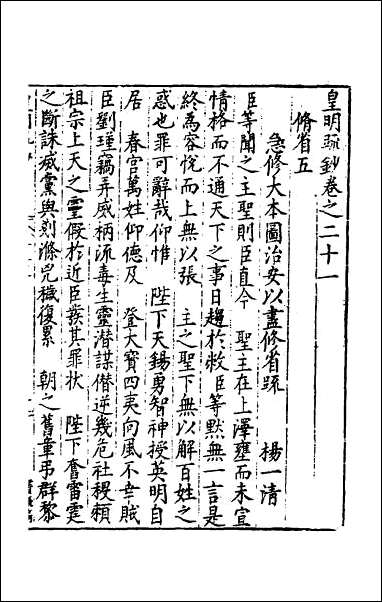 皇明疏鈔卷之二十一
脩省五
急修大本圖治安以盡修省疏 楊一清
臣等聞之主聖則臣直今 聖主在上澤壅而未宣
情格而不通天下之事日趨於敝臣等默無一言是
終為容悅而上無以張 主之聖下無以解百姓之
惑也罪可辭哉仰惟 陛下天錫勇智神授英明自
居 春宮萬姓仰德及 登大寶四夷向風不幸賊
臣劉瑾竊弄威柄流毒生靈潛謀僣逆幾危社稷賴
祖宗上天之靈假於近臣發其罪狀 陛下奮雷霆
之斷誅威黨與剗滌兇穢復累 朝之舊章弔群黎